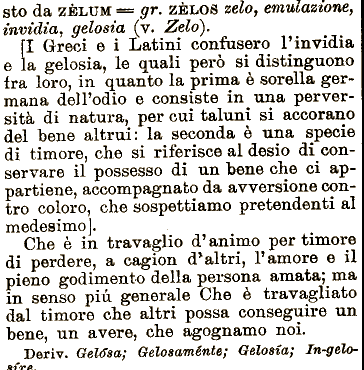 sto da ZÈLUM = gr. ZÈLOS zelo, emulazione,
invidia, gelosia (v. Zelo).
[I Greci e i Latini confusero l'invidia
e la gelosia, le quali però si distinguono
fra loro, in quanto la prima è sorella ger-
mana dell'odio e consiste in una perver-
sità di natura, per cui taluni si accorano
del bene altrui: la seconda è una specie
di timore, che si riferisce al desio di con-
servare il possesso di un bene che ci ap-
partiene, accompagnato da avversione con-
tro coloro, che sospettiamo pretendenti al
medesimo].
Che è in travaglio d'animo per timore
di perdere, a cagion d'altri, l'amore e il
pieno godimento della persona amata; ma
in senso piú generale Che è travagliato
dal timore che altri possa conseguire un
bene, un avere, che agognamo noi.
Deriv. Gelósa; Gelosaménte; Gelosía; In-gelo-
síre.